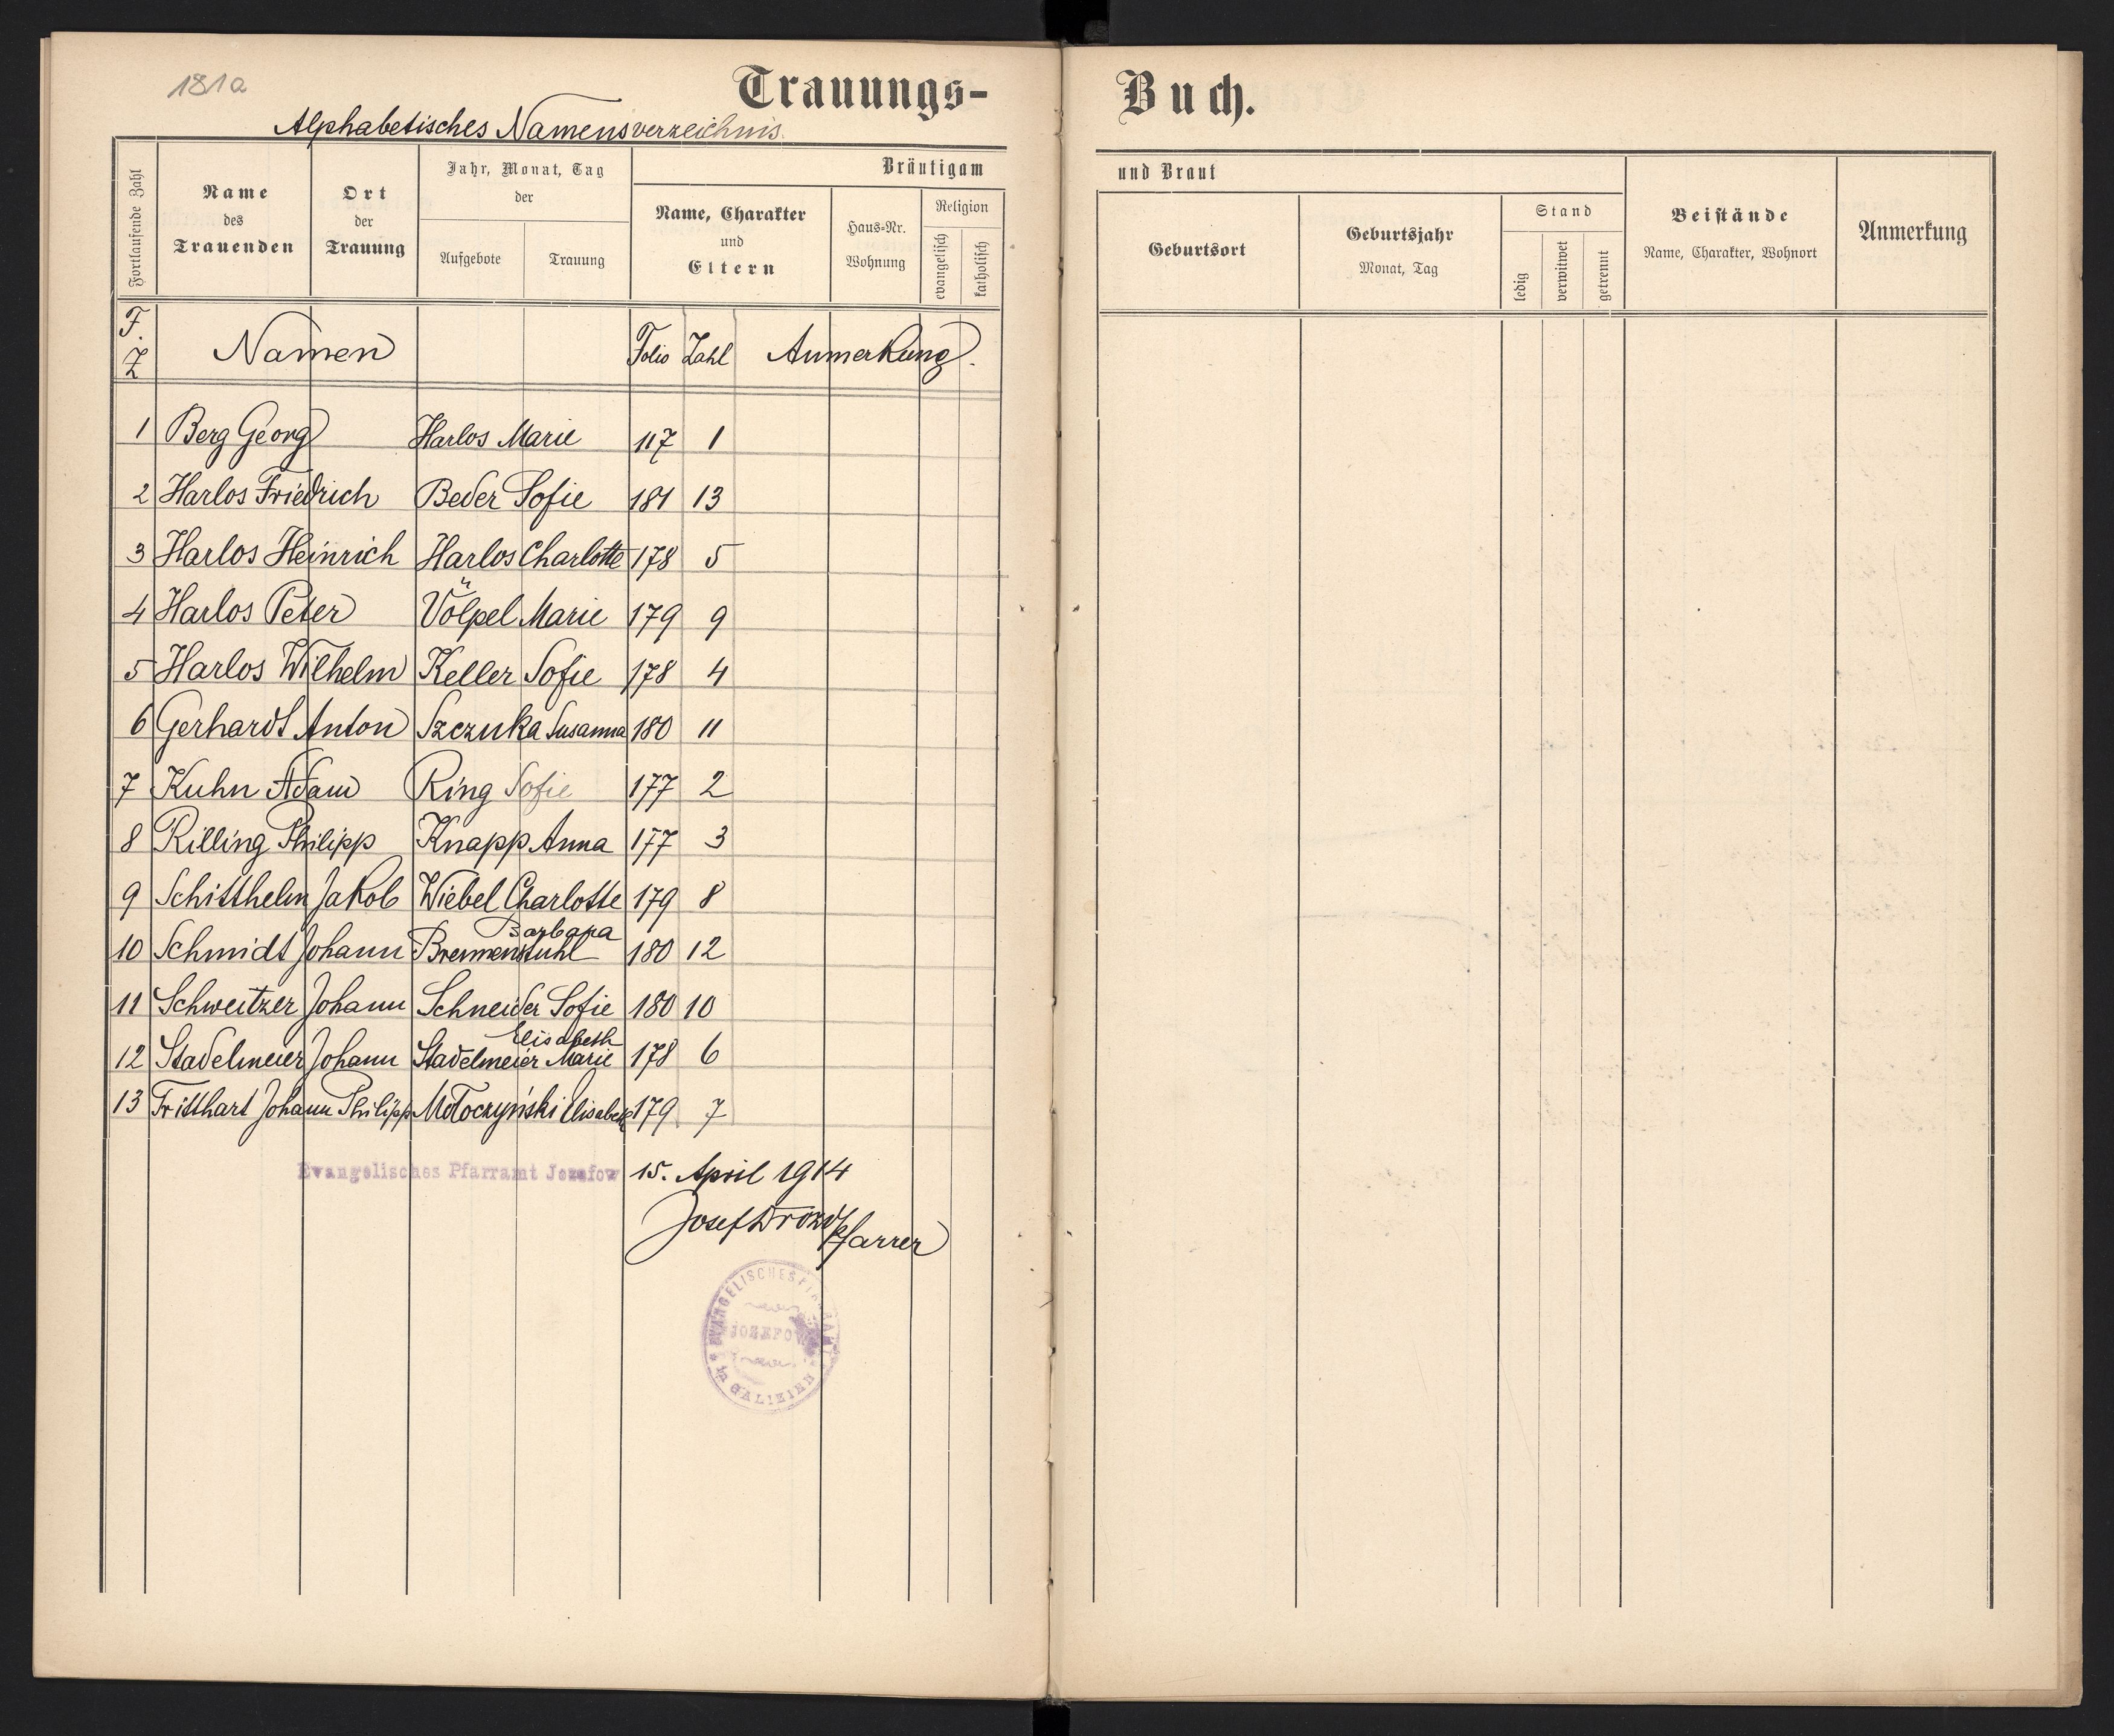 181a
Trauungs-
Alphabetisches Namensverzeichnis.
Fortlaufende Zahl
Name
des
Trauenden
Ort
der
Trauung
Jahr, Monat, Tag
der
Aufgebote
Trauung
Bräutigam
Name, Charakter
und
Eltern
Haus-Nr.
Wohnung
Religion
evangelisch
katholisch
F.
Z
Namen
Folio
Zahl
Anmerkung.
1 Berg Georg Harlos Marie 117 1
2 Harlos Friedrich Beder Sofie 181 13
3 Harlos Heinrich Harlos Charlotte 178 5
4 Harlos Peter Völpel Marie 179 9
5 Harlos Wilhelm Keller Sofie 178 4
6 Gerhardt Anton Szczuka Susanna 180 11
7 Kuhn Adam Ring Sofie 177 2
8 Rilling Philipp Knapp Anna 177 3
9 Schitthelm Jakob Wiebel Charlotte 179 8
Barbara
10 Schmidt Johann Bremenstuhl 180 12
11 Schweitzer Johann Schneider Sofie 180 10
Elisabeth
12 Stadelmeier Johann Stadelmeier Marie 178 6
13 Tritthart Johann Philipp Mołoczyński Elisabeth 179 7
Evangelisches Pfarramt Jozefow 15. April 1914
Josef Drozd Pfarrer
EVANGELISCHES PFARRAMT
JOZEFOW
GALIZIEN
Buch.
und Braut
Geburtsort
Geburtsjahr
Monat, Tag
Stand
ledig
verwitwet
getrennt
Beistände
Name, Charakter, Wohnort
Anmerkung